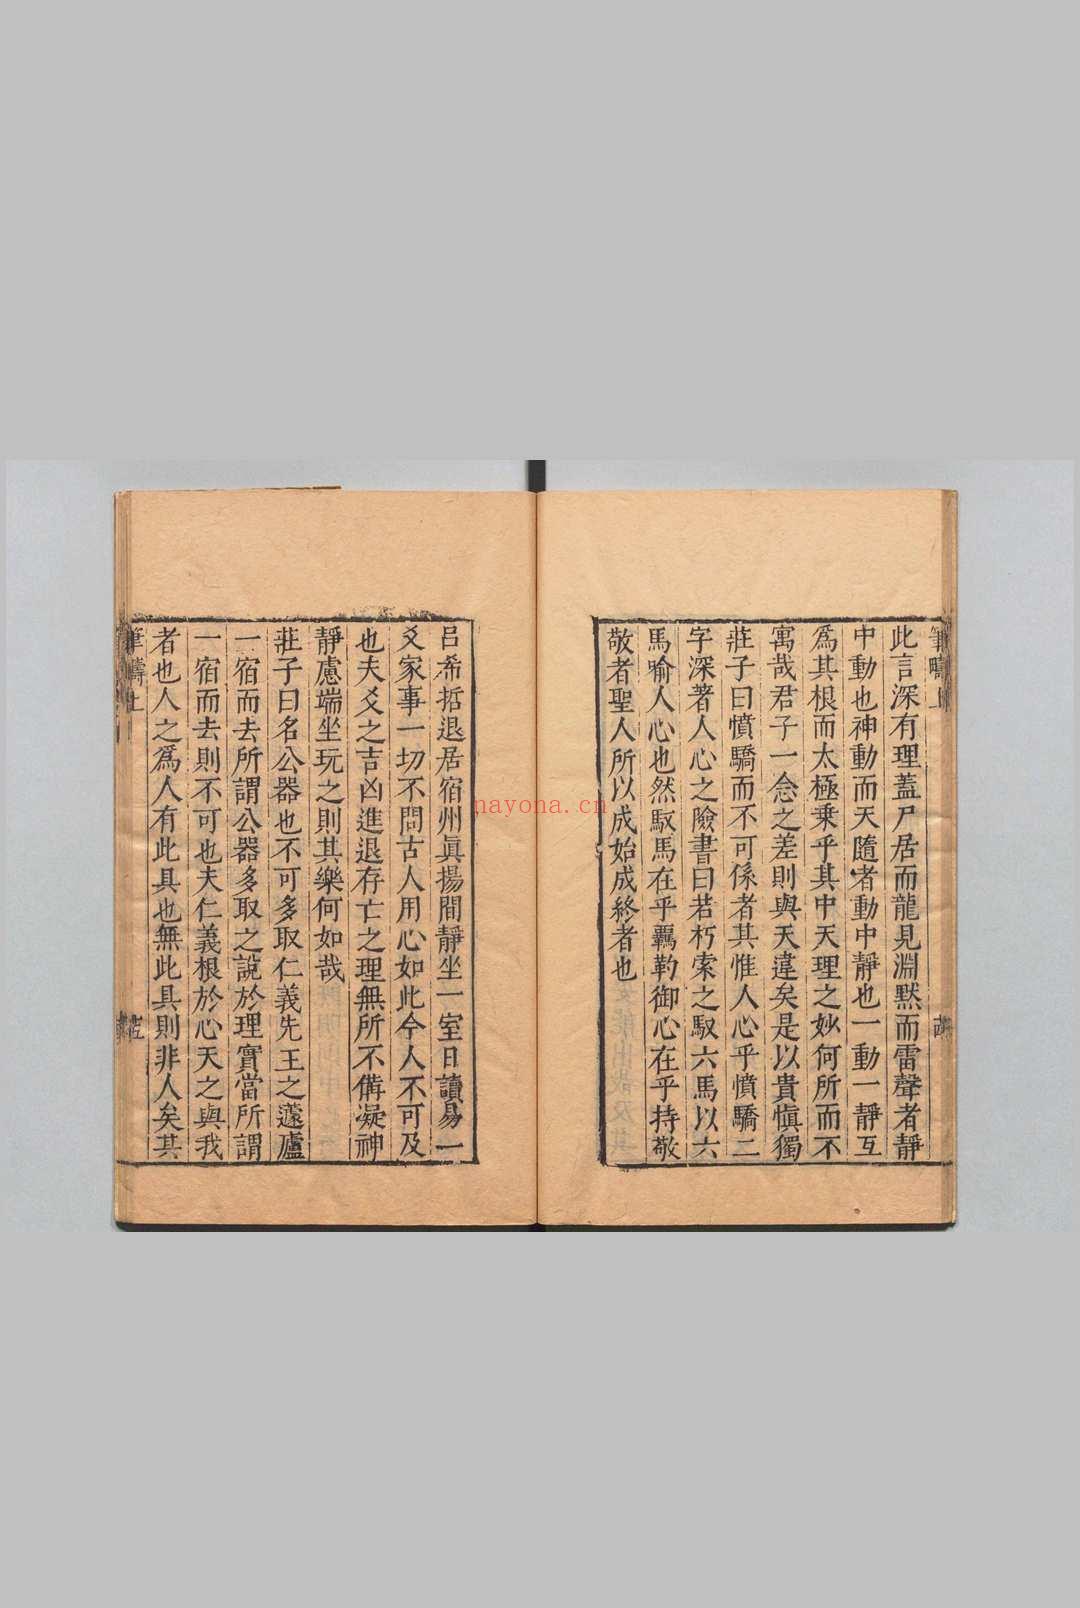 筆疇上
此言深有理蓋尸居而龍見淵默而雷聲者靜
中動也神動而天隨者動中靜也一動一靜互
爲其根而太極乗乎其中天理之妙何所而不
寓哉君子一念之差則與天違矣是以貴慎獨
莊子曰憤驕而不可係者其惟人心乎憤驕二
字深著人心之險書曰若朽索之馭六馬以六
馬喻人心也然馭馬在乎羈勒御心在乎持敬
敬者聖人所以成始成終者也
呂希哲退居宿州眞揚間靜坐一室日讀易一
爻家事一切不問古人用心如此今人不可及
也夫爻之吉凶進退存亡之理無所不備凝神
靜慮端坐玩之則其樂何如哉
莊子曰名公器也不可多取仁義先王之蘧廬
一宿而去所謂公器多取之說於理實當所謂
一宿而去則不可也夫仁義根於心天之與我
者也人之爲人有此具也無此具則非人矣其
筆疇上
nayona.cn